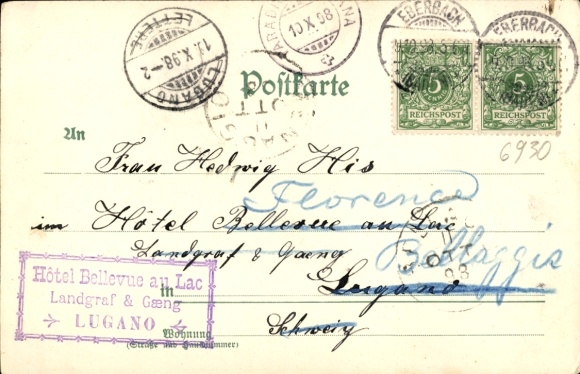 LETTERE
11.X.98.-2
LUGANO
10.X.98
EBERBACH
EBERBACH
Postkarte
5
5
REICHSPOST
REICHSPOST
6930
An
Frau Hedwig His
Florence
im Hôtel Bellevue au Lac
Landgraf & Gaeng
Bellaggio
in Lugano
Schweiz
Hôtel Bellevue au Lac
Landgraf & Gæng
LUGANO
Wohnung
(Straße und Hausnummer)